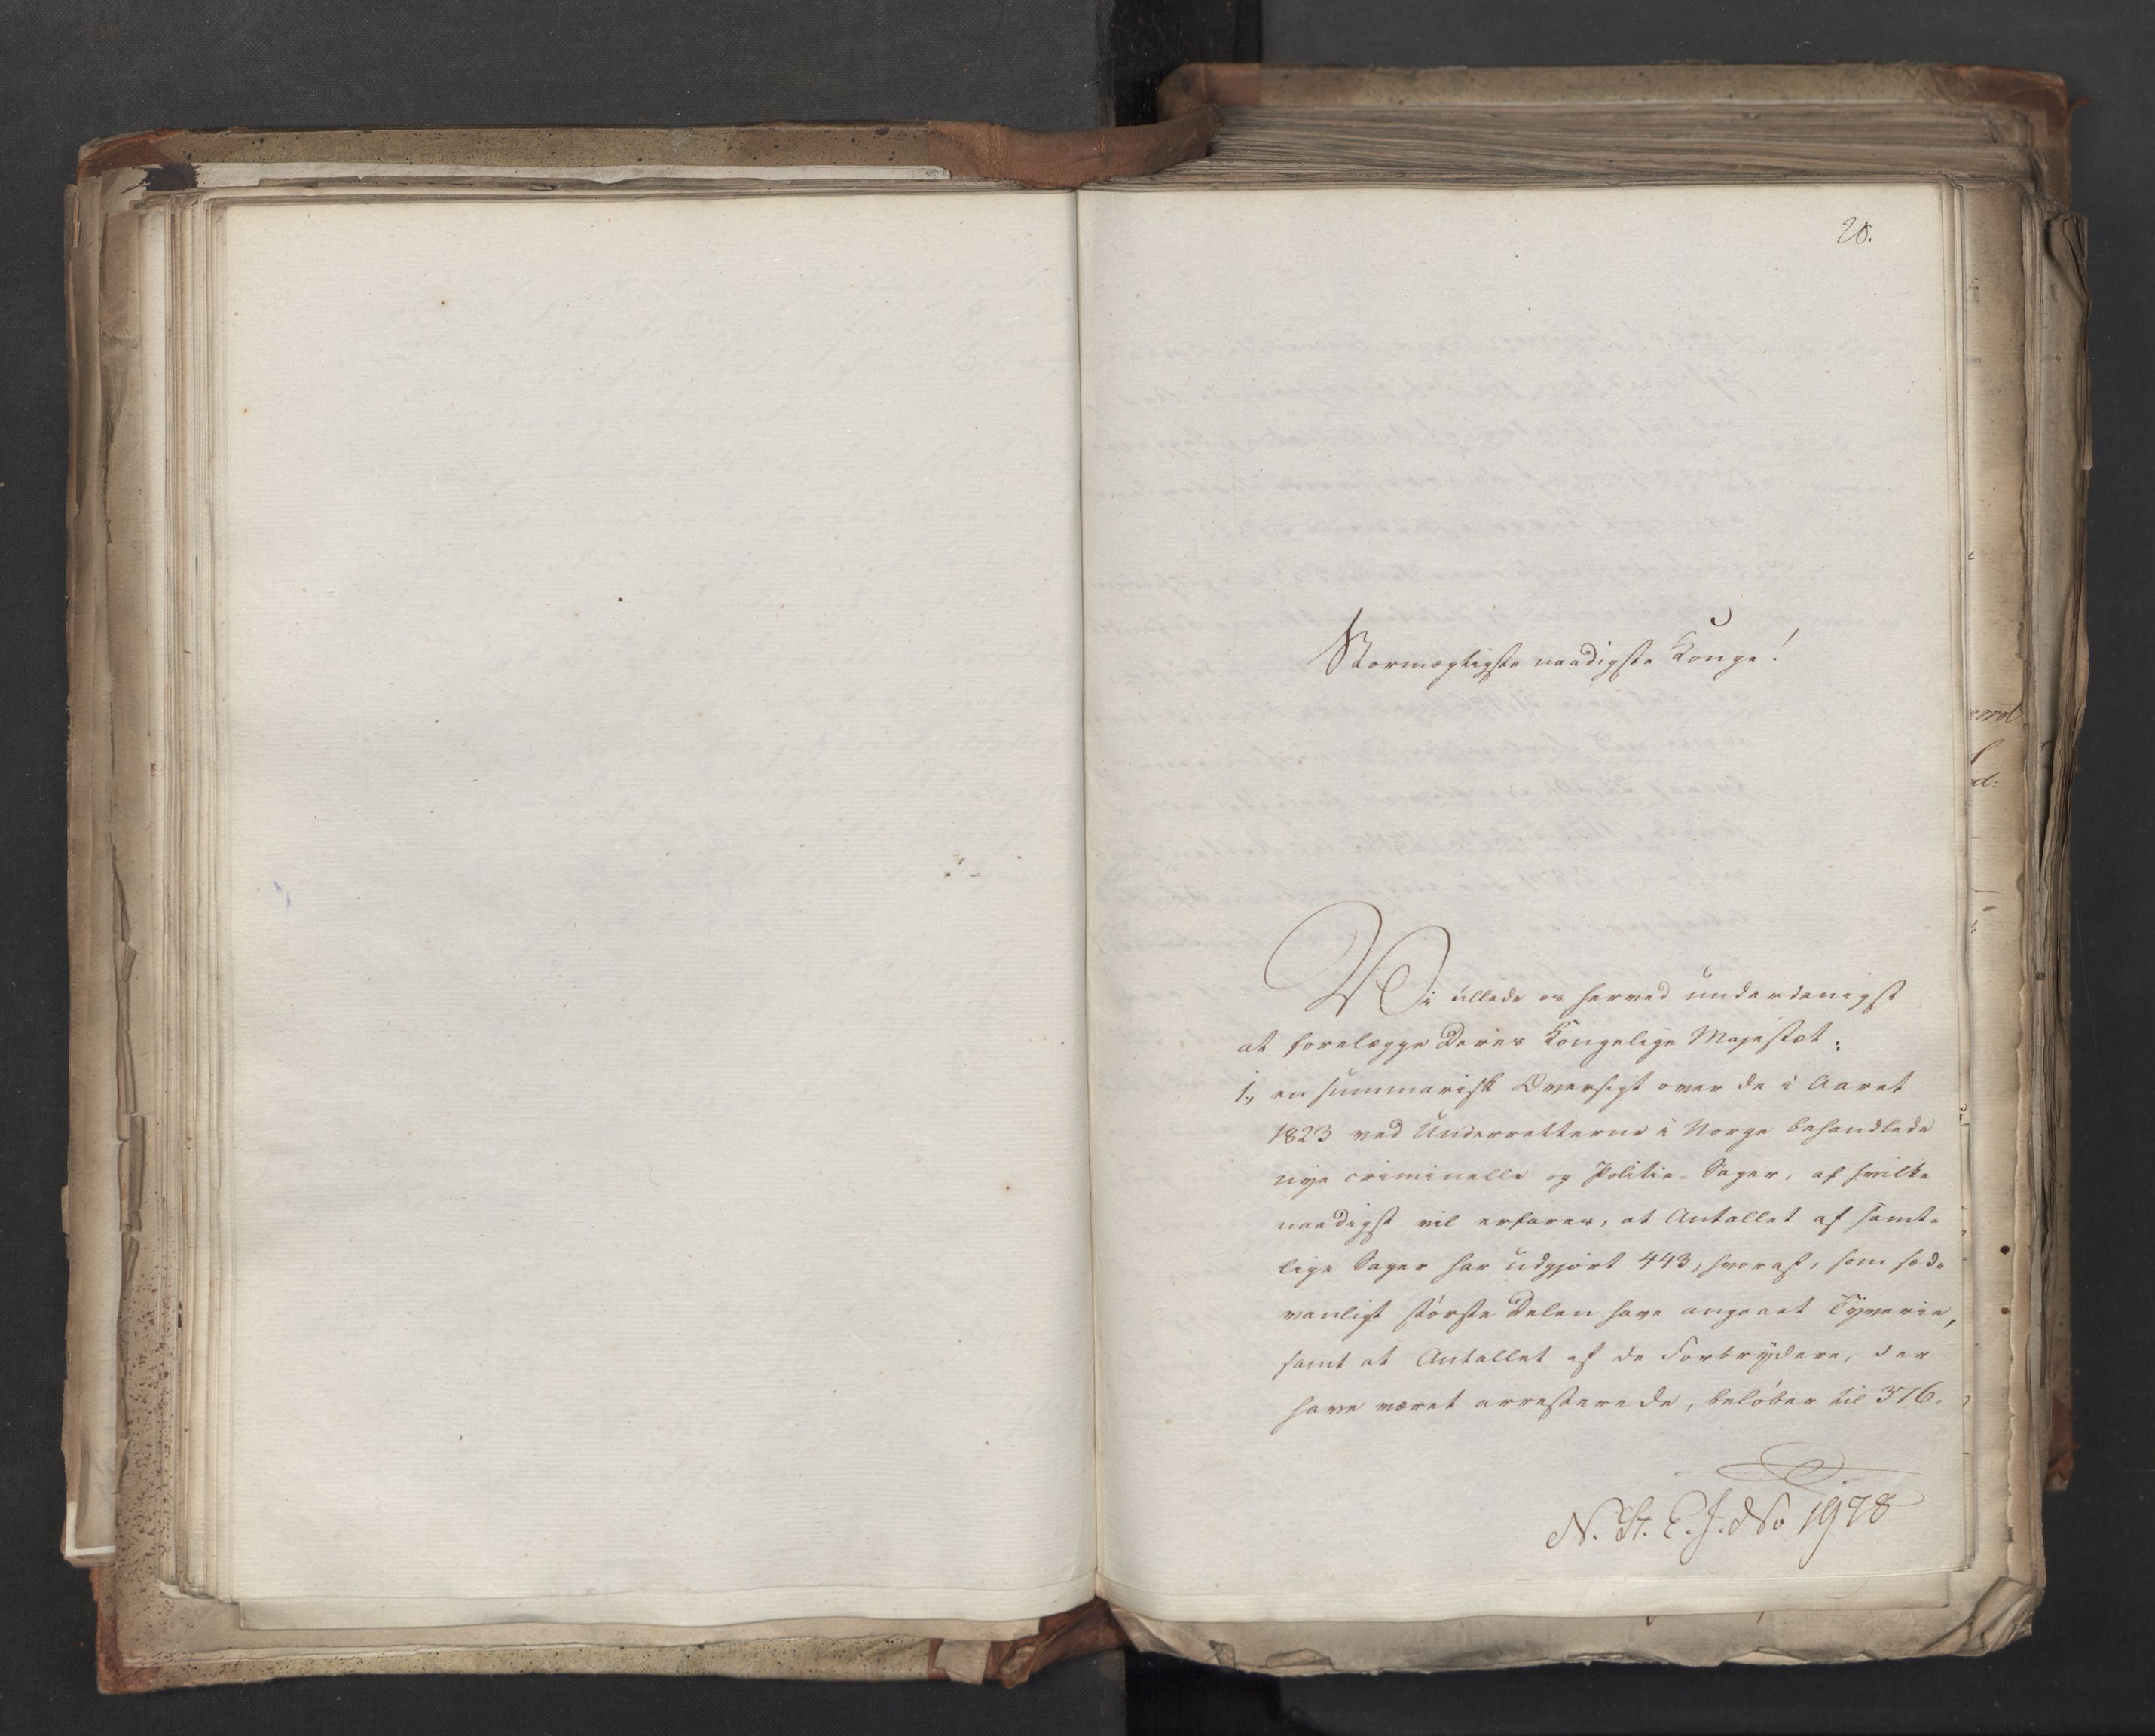 20.
Stormægtigste naadigste Konge!
Vi tillade os herved underdanigst
at forelægge Deres Kongelige Majestæt:
1., en summarisk Oversigt over de i Aaret
1823 ved Underretterne i Norge behandlede
nye criminelle og Politie-Sager, af hvilke
naadigst vil erfares, at Antallet af samt-
lige Sager har udgjort 443, hvoraf, som sæd-
vanligt største Delen have angaaet Tyverie,
samt at Antallet af de Forbrydere, der
have været arresterede, beløber til 376.
N. St. E. J. No 1978